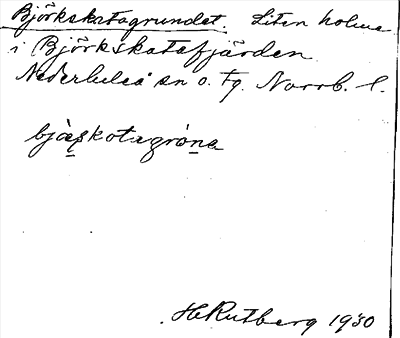 Björkskatagrundet. Liten holme
i Björkskatafjärden.
Nederluleå sn o. tg. Norrb. l.
bjæ̀ʂkotagròna
HRutberg 1930